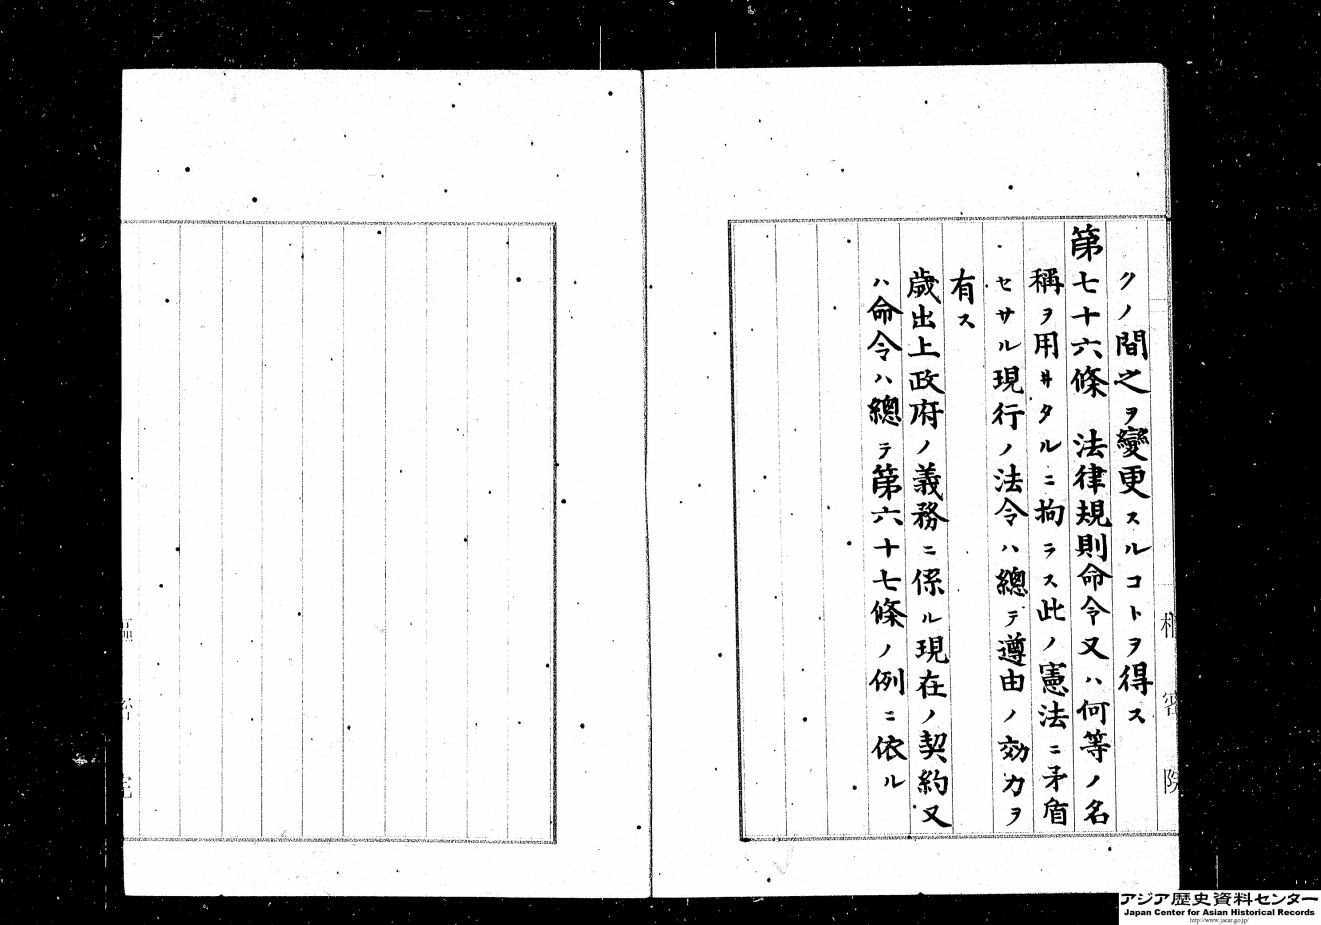 クノ間之ヲ變更スルコトヲ得ス
第七十六條　法律規則命令又ハ何等ノ名
稱ヲ用井タルニ拘ラス此ノ憲法ニ矛盾
セサル現行ノ法令ハ總テ遵由ノ効力ヲ
有ス
歲出上政府ノ義務ニ係ル現在ノ契約又
ハ命令ハ總テ第六十七條ノ例ニ依ル
樞密院
樞密院
アジア歴史資料センター
Japan Center for Asian Historical Records
http://www.jacar.go.jp/